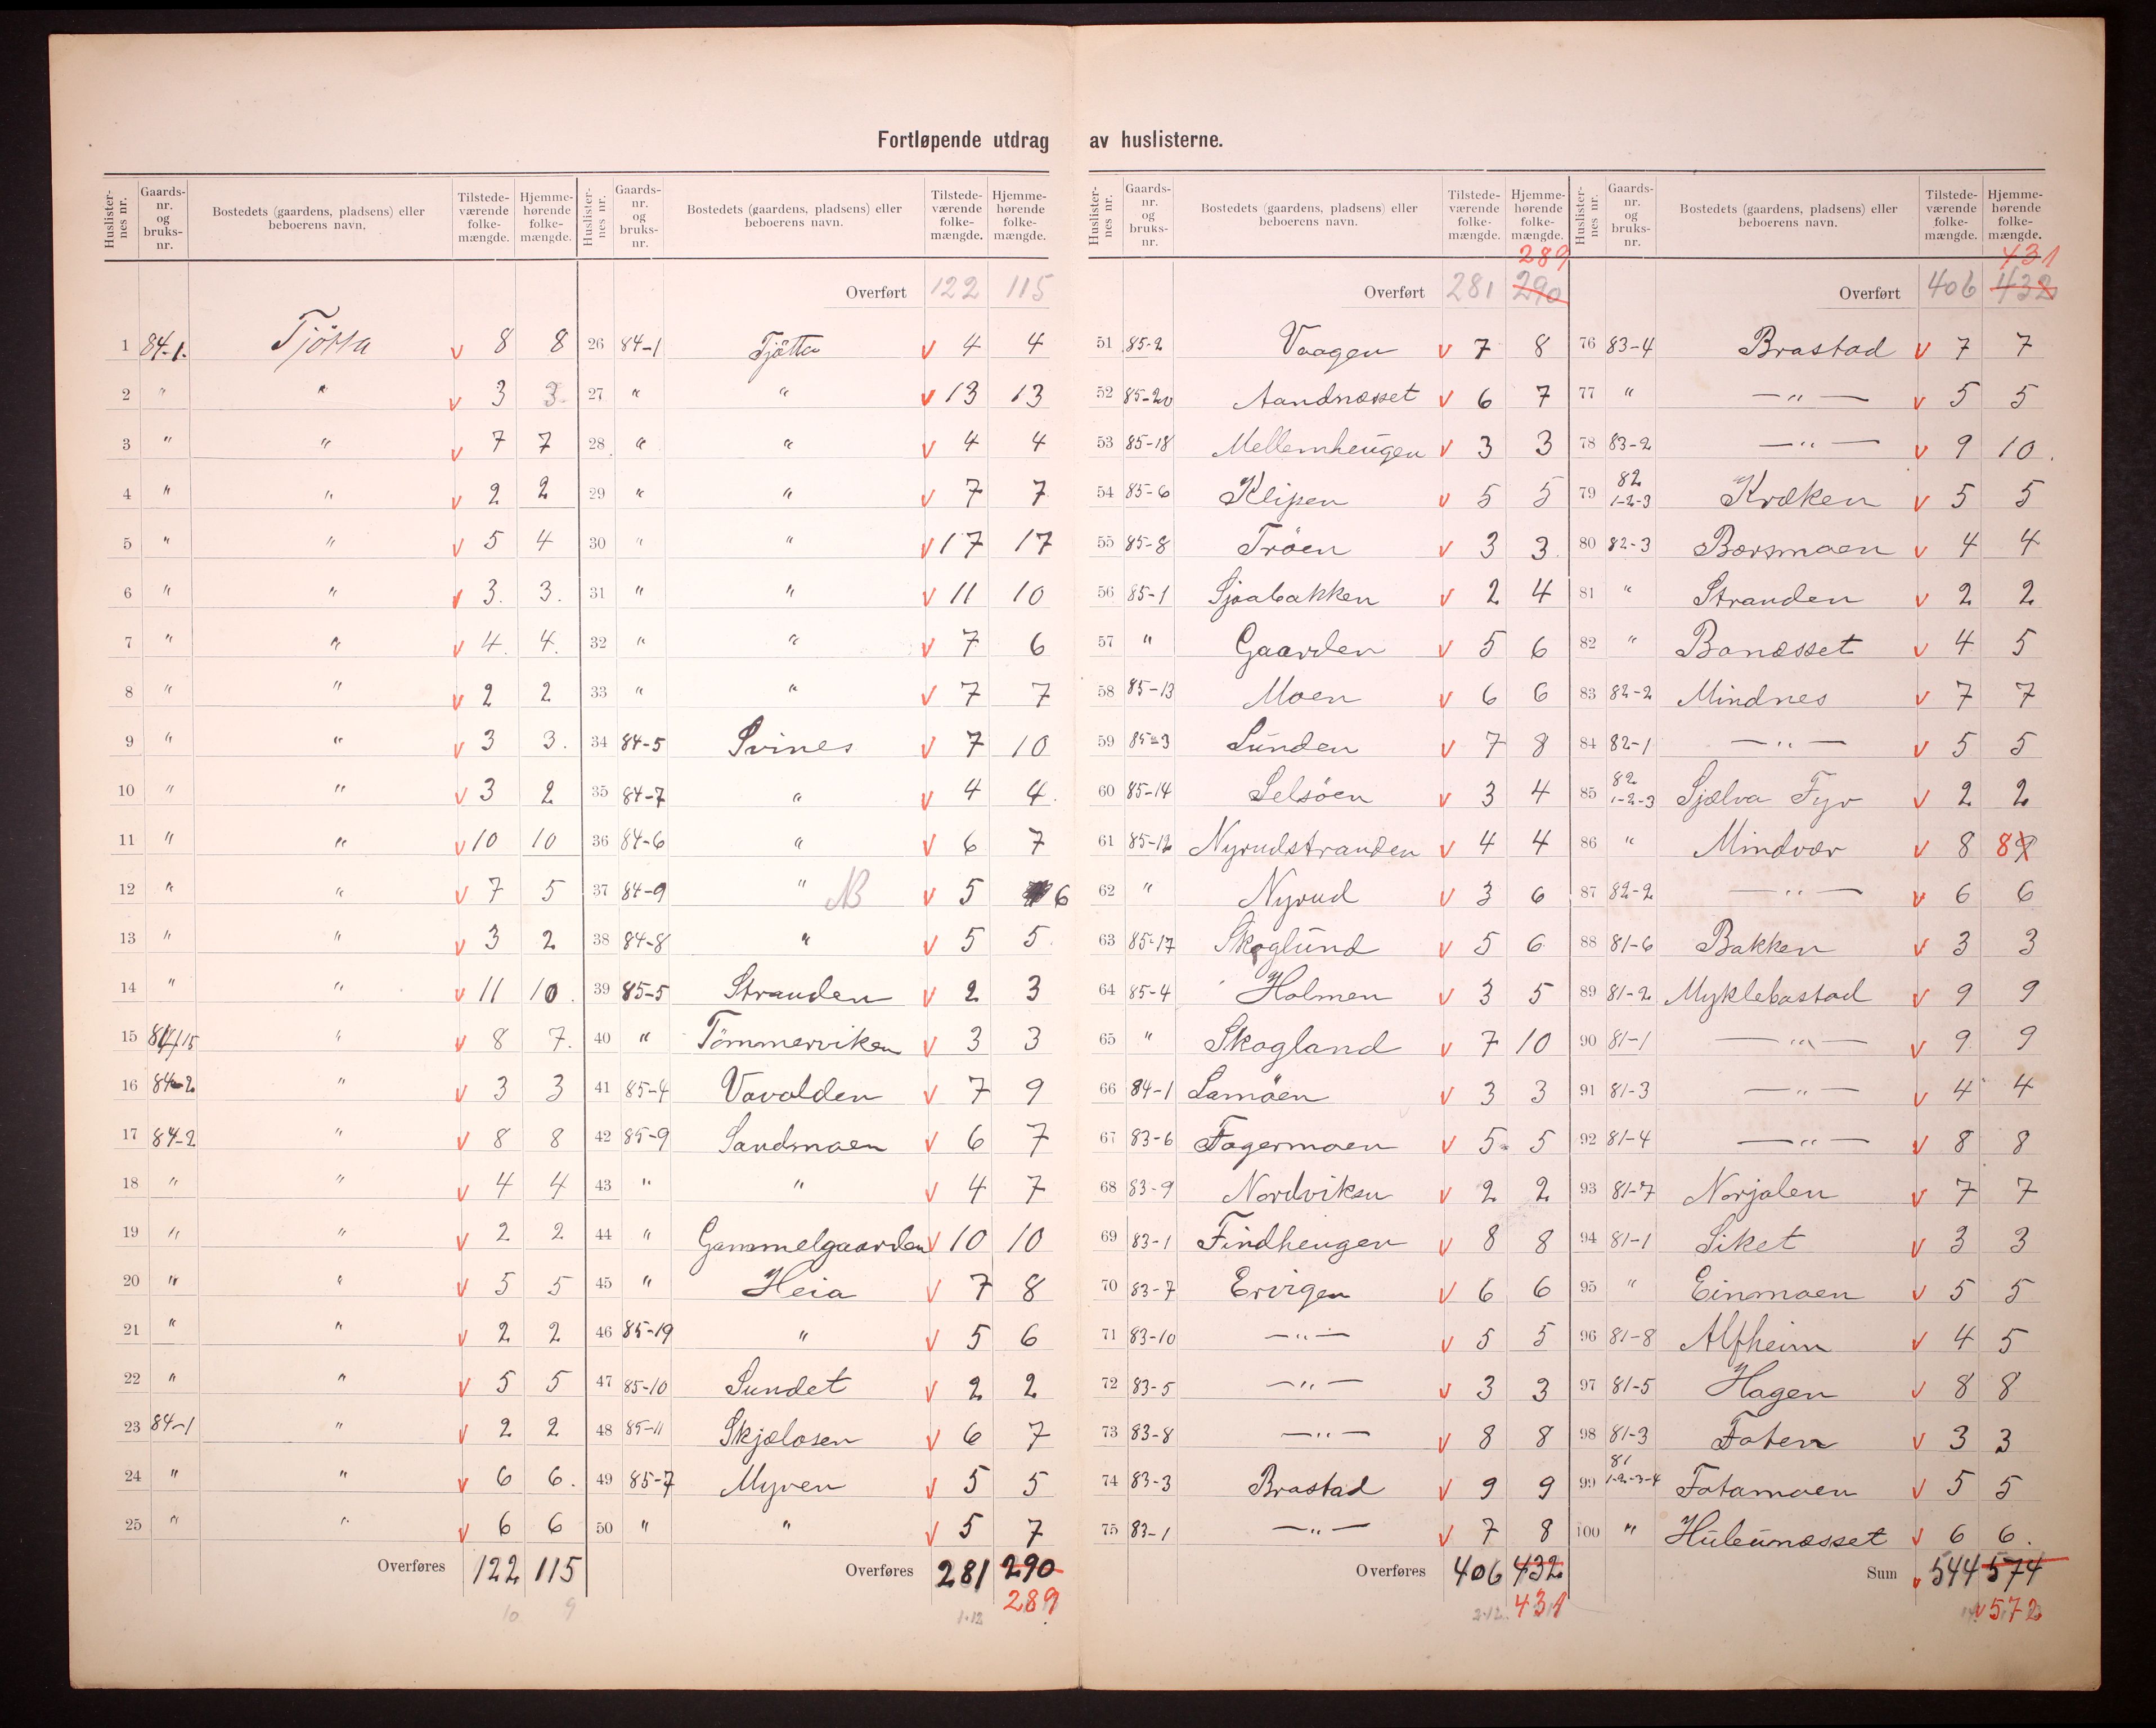 Fortløpende utdrag av huslisterne.
Huslisternes nr. | Gaards-nr. og bruks-nr. | Bostedets (gaardens, pladsens) eller beboerens navn. | Tilstede-værende folke-mængde. | Hjemme-hørende folke-mængde.
1 84-1. Tjötta v 8 8
2 " " v 3 3
3 " " v 7 7
4 " " v 2 2
5 " " v 5 4
6 " " v 3. 3.
7 " " v 4. 4.
8 " " v 2 2
9 " " v 3 3.
10 " " v 3 2
11 " " v 10 10
12 " " v 7 5
13 " " v 3 2
14 " " v 11 10.
15 84/15 " v 8 7.
16 84-2 " v 3 3
17 84-2 " v 8 8
18 " " v 4 4
19 " " v 2 2
20 " " v 5 5
21 " " v 2 2
22 " " v 5 5
23 84-1 " v 2 2
24 " " v 6 6.
25 " " v 6 6
Overføres 122 115
10 9
Huslisternes nr. | Gaards-nr. og bruks-nr. | Bostedets (gaardens, pladsens) eller beboerens navn. | Tilstede-værende folke-mængde. | Hjemme-hørende folke-mængde.
Overført 122 115
26 84-1 Tjötta v 4 4
27 " " v 13 13
28 " " v 4 4
29 " " v 7 7
30 " " v 17 17
31 " " v 11 10
32 " " v 7 6
33 " " v 7 7
34 84-5 Svines v 7 10
35 84-7 " v 4 4.
36 84-6 " v 6 7
37 84-9 " NB v 5 6
38 84-8 " v 5 5
39 85-5 Stranden v 2 3
40 " Tömmerviken v 3 3
41 85-4 Vavolden v 7 9
42 85-9 Sandmoen v 6 7
43 " " v 4 7
44 " Gammelgaarden v 10 10
45 " Heia v 7 8
46 85-19 " v 5 6
47 85-10 Sundet v 2 2
48 85-11 Skjælosen v 6 7
49 85-7 Myren v 5 5
50 " " v 5 7
Overføres 281 290
289
1-12
Huslisternes nr. | Gaards-nr. og bruks-nr. | Bostedets (gaardens, pladsens) eller beboerens navn. | Tilstede-værende folke-mængde. | Hjemme-hørende folke-mængde.
289
Overført 281 290
51 85-2 Vaagen v 7 8
52 85-20 Aandnæsset v 6 7
53 85-18 Mellemheugen v 3 3
54 85-6 Klipen v 5 5
55 85-8 Tröen v 3 3
56 85-1 Sjøabakken v 2 4
57 " Gaarden v 5 6
58 85-13 Moen v 6 6
59 85-3 Lunden v 7 8
60 85-14 Selsöen v 3 4
61 85-12 Nyrudstranden v 4 4
62 " Nyrud v 3 6
63 85-17 Skoglund v 5 6
64 85-4 Holmen v 3 5
65 " Skogland v 7 10
66 84-1 Lamöen v 3 3
67 83-6 Fagermoen v 5 5
68 83-9 Nordviken v 2 2
69 83-1 Findheugen v 8 8
70 83-7 Ervigen v 6 6
71 83-10 —"— v 5 5
72 83-5 —"— v 3 3
73 83-8 —"— v 8 8
74 83-3 Brastad v 9 9
75 83-1 —"— v 7 8
Overføres 406 432
2-12. 431
Huslisternes nr. | Gaards-nr. og bruks-nr. | Bostedets (gaardens, pladsens) eller beboerens navn. | Tilstede-værende folke-mængde. | Hjemme-hørende folke-mængde.
431
Overført 406 432
76 83-4 Brastad v 7 7
77 " —"— v 5 5
78 83-2 —"— v 9 10.
79 82 1-2-3 Kræken v 5 5
80 82-3 Borsmoen v 4 4
81 " Stranden v 2 2
82 " Bonæsset v 4 5
83 82-2 Mindnes v 7 7
84 82-1 —"— v 5 5
85 82 1-2-3 Sjælva Fyr v 2 2
86 " Mindvær v 8 8
87 82-2 —"— v 6 6
88 81-6 Bakken v 3 3
89 81-2 Myklebastad v 9 9
90 81-1 —"— v 9 9
91 81-3 —"— v 4 4
92 81-4 —"— v 8 8
93 81-7 Norjalen v 7 7
94 81-1 Siket v 3 3
95 " Einmoen v 5 5
96 81-8 Alfheim v 4 5
97 81-5 Hagen v 8 8
98 81-3 Foten v 3 3
99 81 1-2-3-4 Fotamoen v 5 5
100 " Huleunæsset v 6 6.
Sum v 544 574
v 572